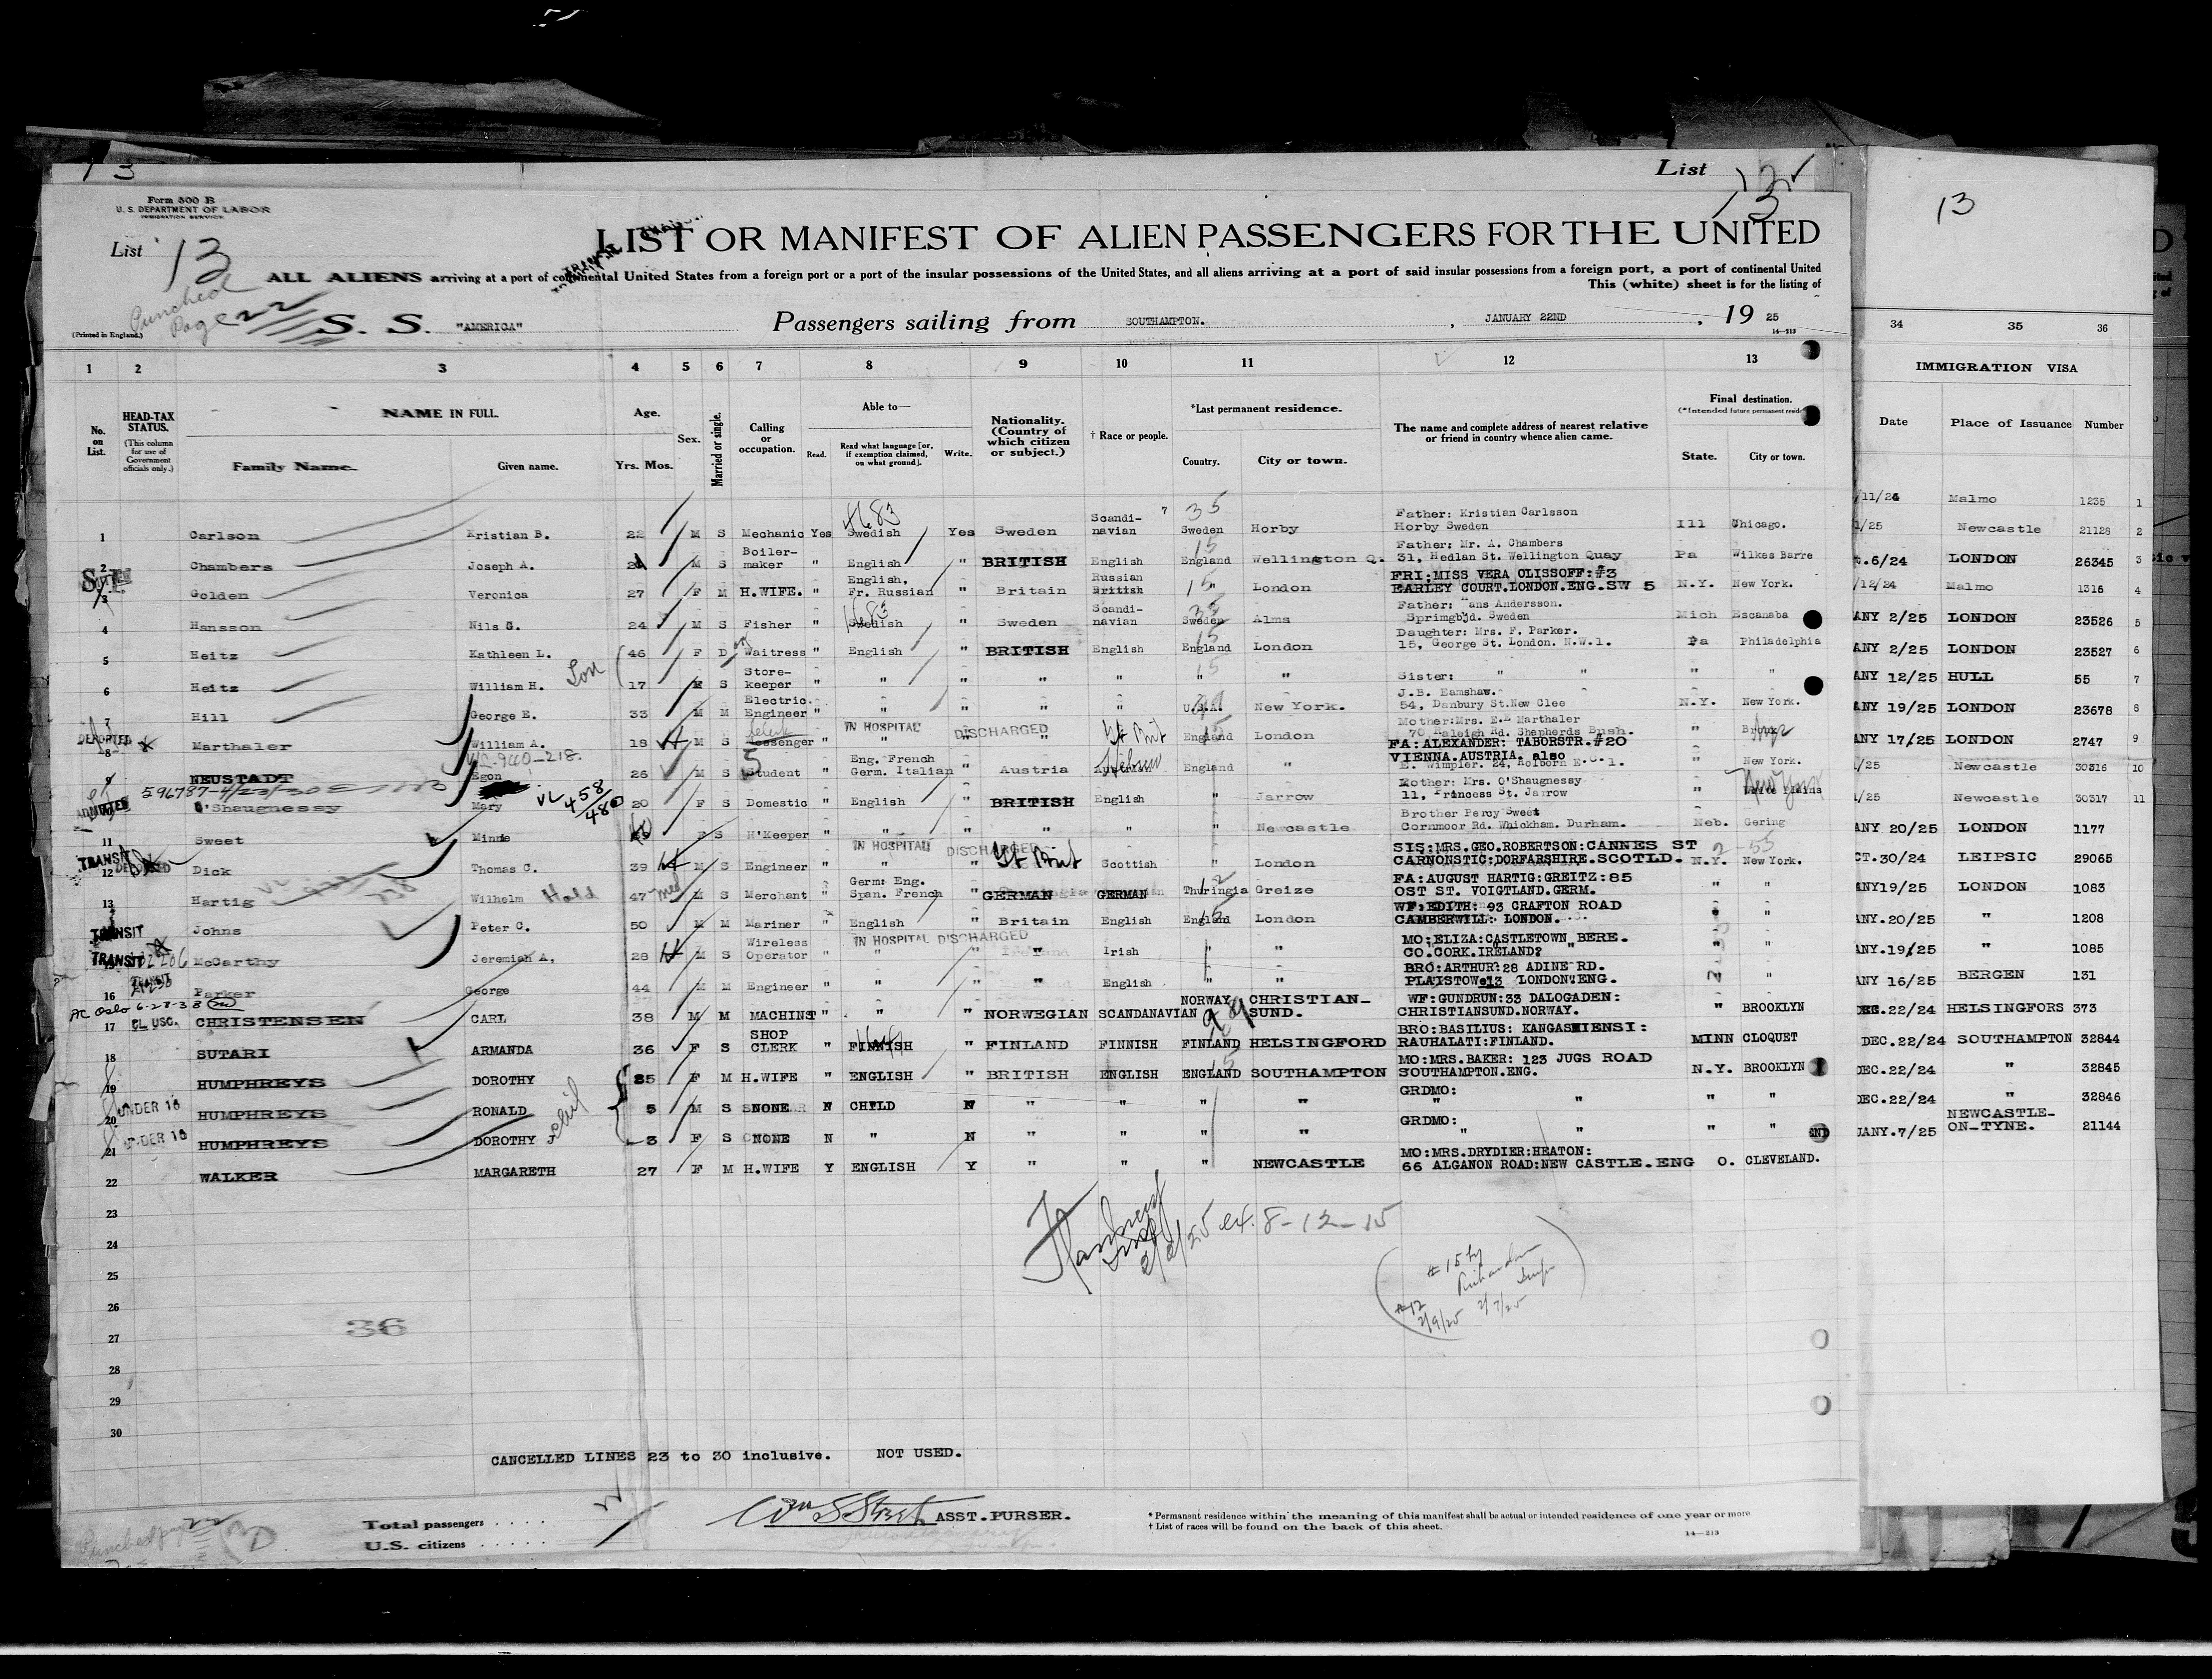 13
List 13
13
Form 500 B
U. S. DEPARTMENT OF LABOR
IMMIGRATION SERVICE
List 13
LIST OR MANIFEST OF ALIEN PASSENGERS FOR THE UNITED
ALL ALIENS arriving at a port of continental United States from a foreign port or a port of the insular possessions of the United States, and all aliens arriving at a port of said insular possessions from a foreign port, a port of continental United
This (white) sheet is for the listing of
Punched Page 22
(Printed in England.)
S. S. "AMERICA" Passengers sailing from SOUTHAMPTON. , JANUARY 22ND , 19 25
14—213
1 2 3 4 5 6 7 8 9 10 11 12 13
34 35 36
IMMIGRATION VISA
Date Place of Issuance Number
No. on List.
HEAD-TAX STATUS.
(This column for use of Government officials only.)
NAME IN FULL.
Family Name. Given name.
Age.
Yrs. Mos.
Sex.
Married or single.
Calling or occupation.
Able to—
Read. Read what language [or, if exemption claimed, on what ground]. Write.
Nationality. (Country of which citizen or subject.)
† Race or people.
*Last permanent residence.
Country. City or town.
The name and complete address of nearest relative or friend in country whence alien came.
Final destination.
State. City or town.
1 Carlson Kristian B. 22 M S Mechanic Yes Swedish Yes Sweden Scandi-navian Sweden Horby Father: Kristian Carlsson Horby Sweden Ill Chicago.
2 Chambers Joseph A. M S Boiler-maker " English " BRITISH English England Wellington Q. Father: Mr. A. Chambers 31, Hedlan St. Wellington Quay Pa Wilkes Barre
3 Golden Veronica 27 F M H.WIFE. " English, Fr. Russian " Britain Russian British " London FRI:MISS VERA OLISSOFF:#3 EARLEY COURT.LONDON.ENG.SW 5 N.Y. New York.
4 Hansson Nils 24 M S Fisher " Swedish " Sweden Scandi-navian Sweden Alma Father: Hans Andersson. Sweden Mich Escanaba
5 Heitz Kathleen L. 46 F D Waitress " English " BRITISH English England London Daughter: Mrs. F. Parker. 15, George St. London. N.W.1. Pa Philadelphia
6 Heitz William H. Son 17 M S Store-keeper " " " " " " " Sister: " " " "
7 Hill George E. 33 M M Electric. Engineer " " " " " U.S.A. New York. J.B. Eamshaw. 54, Danbury St.New Clee N.Y. New York.
8 DEPORTED Marthaler William A. 18 M S Messenger " " IN HOSPITAL DISCHARGED " England London Mother:Mrs. E. Marthaler 70 Raleigh Rd. Shepherds Bush. "
9 NEUSTADT Egon 26 M S Student " Eng. French Germ. Italian " Austria Hebrew England " FA:ALEXANDER: TABORSTR.#20 VIENNA.AUSTRIA. also E. Wimpler. 24, Holborn E.C.1. " New York.
10 ADMITTED O'Shaugnessy Mary 20 F S Domestic " English " BRITISH English " Jarrow Mother: Mrs. O'Shaugnessy 11, Princess St. Jarrow " New York
11 Sweet Minnie F S H'Keeper " " " " " " Newcastle Brother Percy Sweet Cornmoor Rd. Whickham. Durham. Neb. Gering
12 TRANSIT Dick Thomas C. 39 M S Engineer " " IN HOSPITAL DISCHARGED Gt Brit Scottish " London SIS:MRS.GEO.ROBERTSON:CANNES ST CARNONSTIC:DORFARSHIRE.SCOTLD. N.Y. New York.
13 Hartig Wilhelm Hold 47 M S Merchant " Germ: Eng. Span. French " GERMAN GERMAN Thuringia Greize FA:AUGUST HARTIG:GREITZ:85 OST ST. VOIGTLAND.GERM. " "
TRANSIT Johns Peter C. 50 M M Mariner " English " Britain English England London WF:EDITH: 93 CRAFTON ROAD CAMBERWILL: LONDON. " "
TRANSIT McCarthy Jeremiah A. 28 M S Wireless Operator " " IN HOSPITAL DISCHARGED " " Irish " " MO:ELIZA:CASTLETOWN BERE. CO.CORK.IRELAND? " "
16 TRANSIT Parker George 44 M M Engineer " " " " English " " BRO:ARTHUR:28 ADINE RD. PLAISTOWe13 LONDON:ENG. "
17 CHRISTENSEN CARL 38 M M MACHINST " " " NORWEGIAN SCANDANAVIAN NORWAY CHRISTIAN-SUND. WF:GUNDRUN:33 DALOGADEN: CHRISTIANSUND.NORWAY. " BROOKLYN
18 SUTARI ARMANDA 36 F S SHOP CLERK " FINNISH " FINLAND FINNISH FINLAND HELSINGFORD BRO:BASILIUS: KANGASNIENSI: RAUHALATI:FINLAND. MINN CLOQUET
19 HUMPHREYS DOROTHY 25 F M H.WIFE " ENGLISH " BRITISH ENGLISH ENGLAND SOUTHAMPTON MO:MRS.BAKER: 123 JUGS ROAD SOUTHAMPTON.ENG. N.Y. BROOKLYN
20 UNDER 16 HUMPHREYS RONALD 5 M S NONE N CHILD N " " " " GRDMO: " " " "
21 UNDER 16 HUMPHREYS DOROTHY 3 F S NONE N " N " " " " GRDMO: " " " "
22 WALKER MARGARETH 27 F M H.WIFE Y ENGLISH Y " " " NEWCASTLE MO:MRS.DRYDIER:HEATON: 66 ALGANON ROAD:NEW CASTLE.ENG O. CLEVELAND.
23
24
25
26
27
28
29
30
/11/24 Malmo 1235 1
1/25 Newcastle 21128 2
t.6/24 LONDON 26345 3
/12/24 Malmo 1316 4
ANY 2/25 LONDON 23526 5
ANY 2/25 LONDON 23527 6
ANY 12/25 HULL 55 7
ANY 19/25 LONDON 23678 8
ANY 17/25 LONDON 2747 9
/25 Newcastle 30316 10
/25 Newcastle 30317 11
ANY 20/25 LONDON 1177
CT.30/24 LEIPSIC 29065
ANY19/25 LONDON 1083
ANY.20/25 " 1208
ANY.19/25 " 1085
ANY 16/25 BERGEN 131
DEC.22/24 HELSINGFORS 373
DEC.22/24 SOUTHAMPTON 32844
DEC.22/24 " 32845
DEC.22/24 " 32846
JANY.7/25 NEWCASTLE-ON-TYNE. 21144
ex. 8-12-15
#15 by
#12 2/9/25 2/7/25
36
CANCELLED LINES 23 to 30 inclusive. NOT USED.
Total passengers . . . .
U.S. citizens . . . . . .
Wm S Street ASST.PURSER.
* Permanent residence within the meaning of this manifest shall be actual or intended residence of one year or more
† List of races will be found on the back of this sheet.
14—213